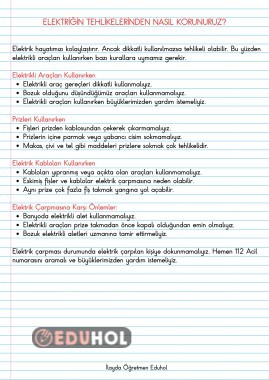 ELEKTRİĞİN TEHLİKELERİNDEN NASIL KORUNURUZ?
Elektrik hayatımızı kolaylaştırır. Ancak dikkatli kullanılmazsa tehlikeli olabilir. Bu yüzden
elektrikli araçları kullanırken bazı kurallara uymamız gerekir.
Elektrikli Araçları Kullanırken
• Elektrikli araç gereçleri dikkatli kullanmalıyız.
• Bozuk olduğunu düşündüğümüz araçları kullanmamalıyız.
• Elektrikli araçları kullanırken büyüklerimizden yardım istemeliyiz.
Prizleri Kullanırken
• Fişleri prizden kablosundan çekerek çıkarmamalıyız.
• Prizlerin içine parmak veya yabancı cisim sokmamalıyız.
• Makas, çivi ve tel gibi maddeleri prizlere sokmak çok tehlikelidir.
Elektrik Kabloları Kullanırken
• Kabloları yıpranmış veya açıkta olan araçları kullanmamalıyız.
• Eskimiş fişler ve kablolar elektrik çarpmasına neden olabilir.
• Aynı prize çok fazla fiş takmak yangına yol açabilir.
Elektrik Çarpmasına Karşı Önlemler:
• Banyoda elektrikli alet kullanmamalıyız.
• Elektrikli araçları prize takmadan önce kapalı olduğundan emin olmalıyız.
• Bozuk elektrikli aletleri uzmanına tamir ettirmeliyiz.
Elektrik çarpması durumunda elektrik çarpılan kişiye dokunmamalıyız. Hemen 112 Acil
numarasını aramalı ve büyüklerimizden yardım istemeliyiz.
EDUHOL
İlayda Öğretmen Eduhol